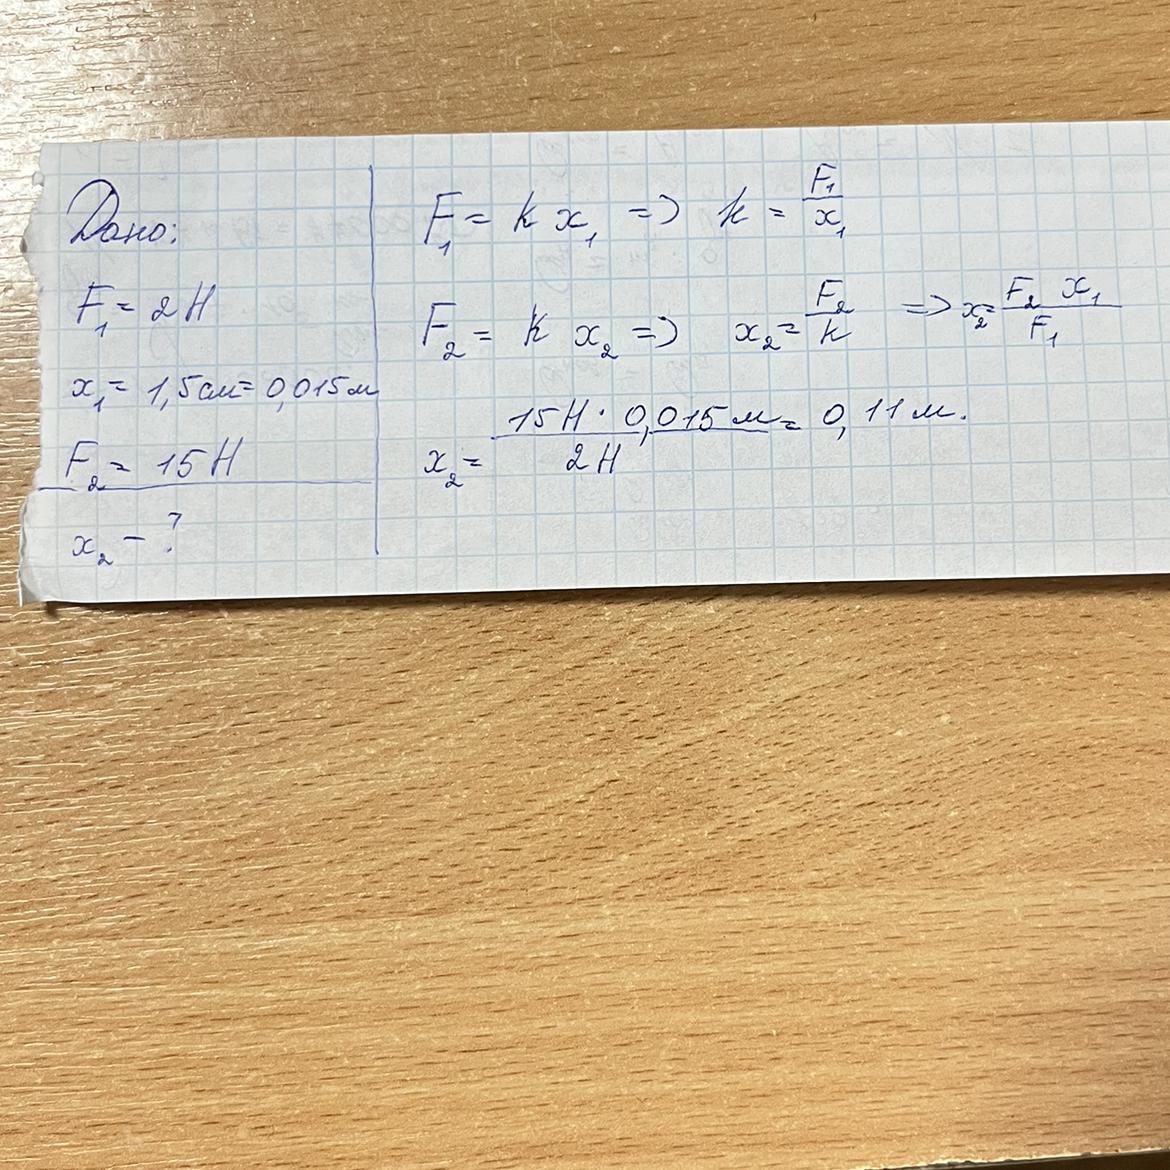 Дано:
F₁ = 2 Н
x₁ = 1,5 см = 0,015 м
F₂ = 15 Н
x₂ - ?
F₁ = k x₁ => k = F₁/x₁
F₂ = k x₂ => x₂ = F₂/k => x₂ = F₂ x₁/F₁
x₂ = 15 Н · 0,015 м/2 Н = 0,11 м.